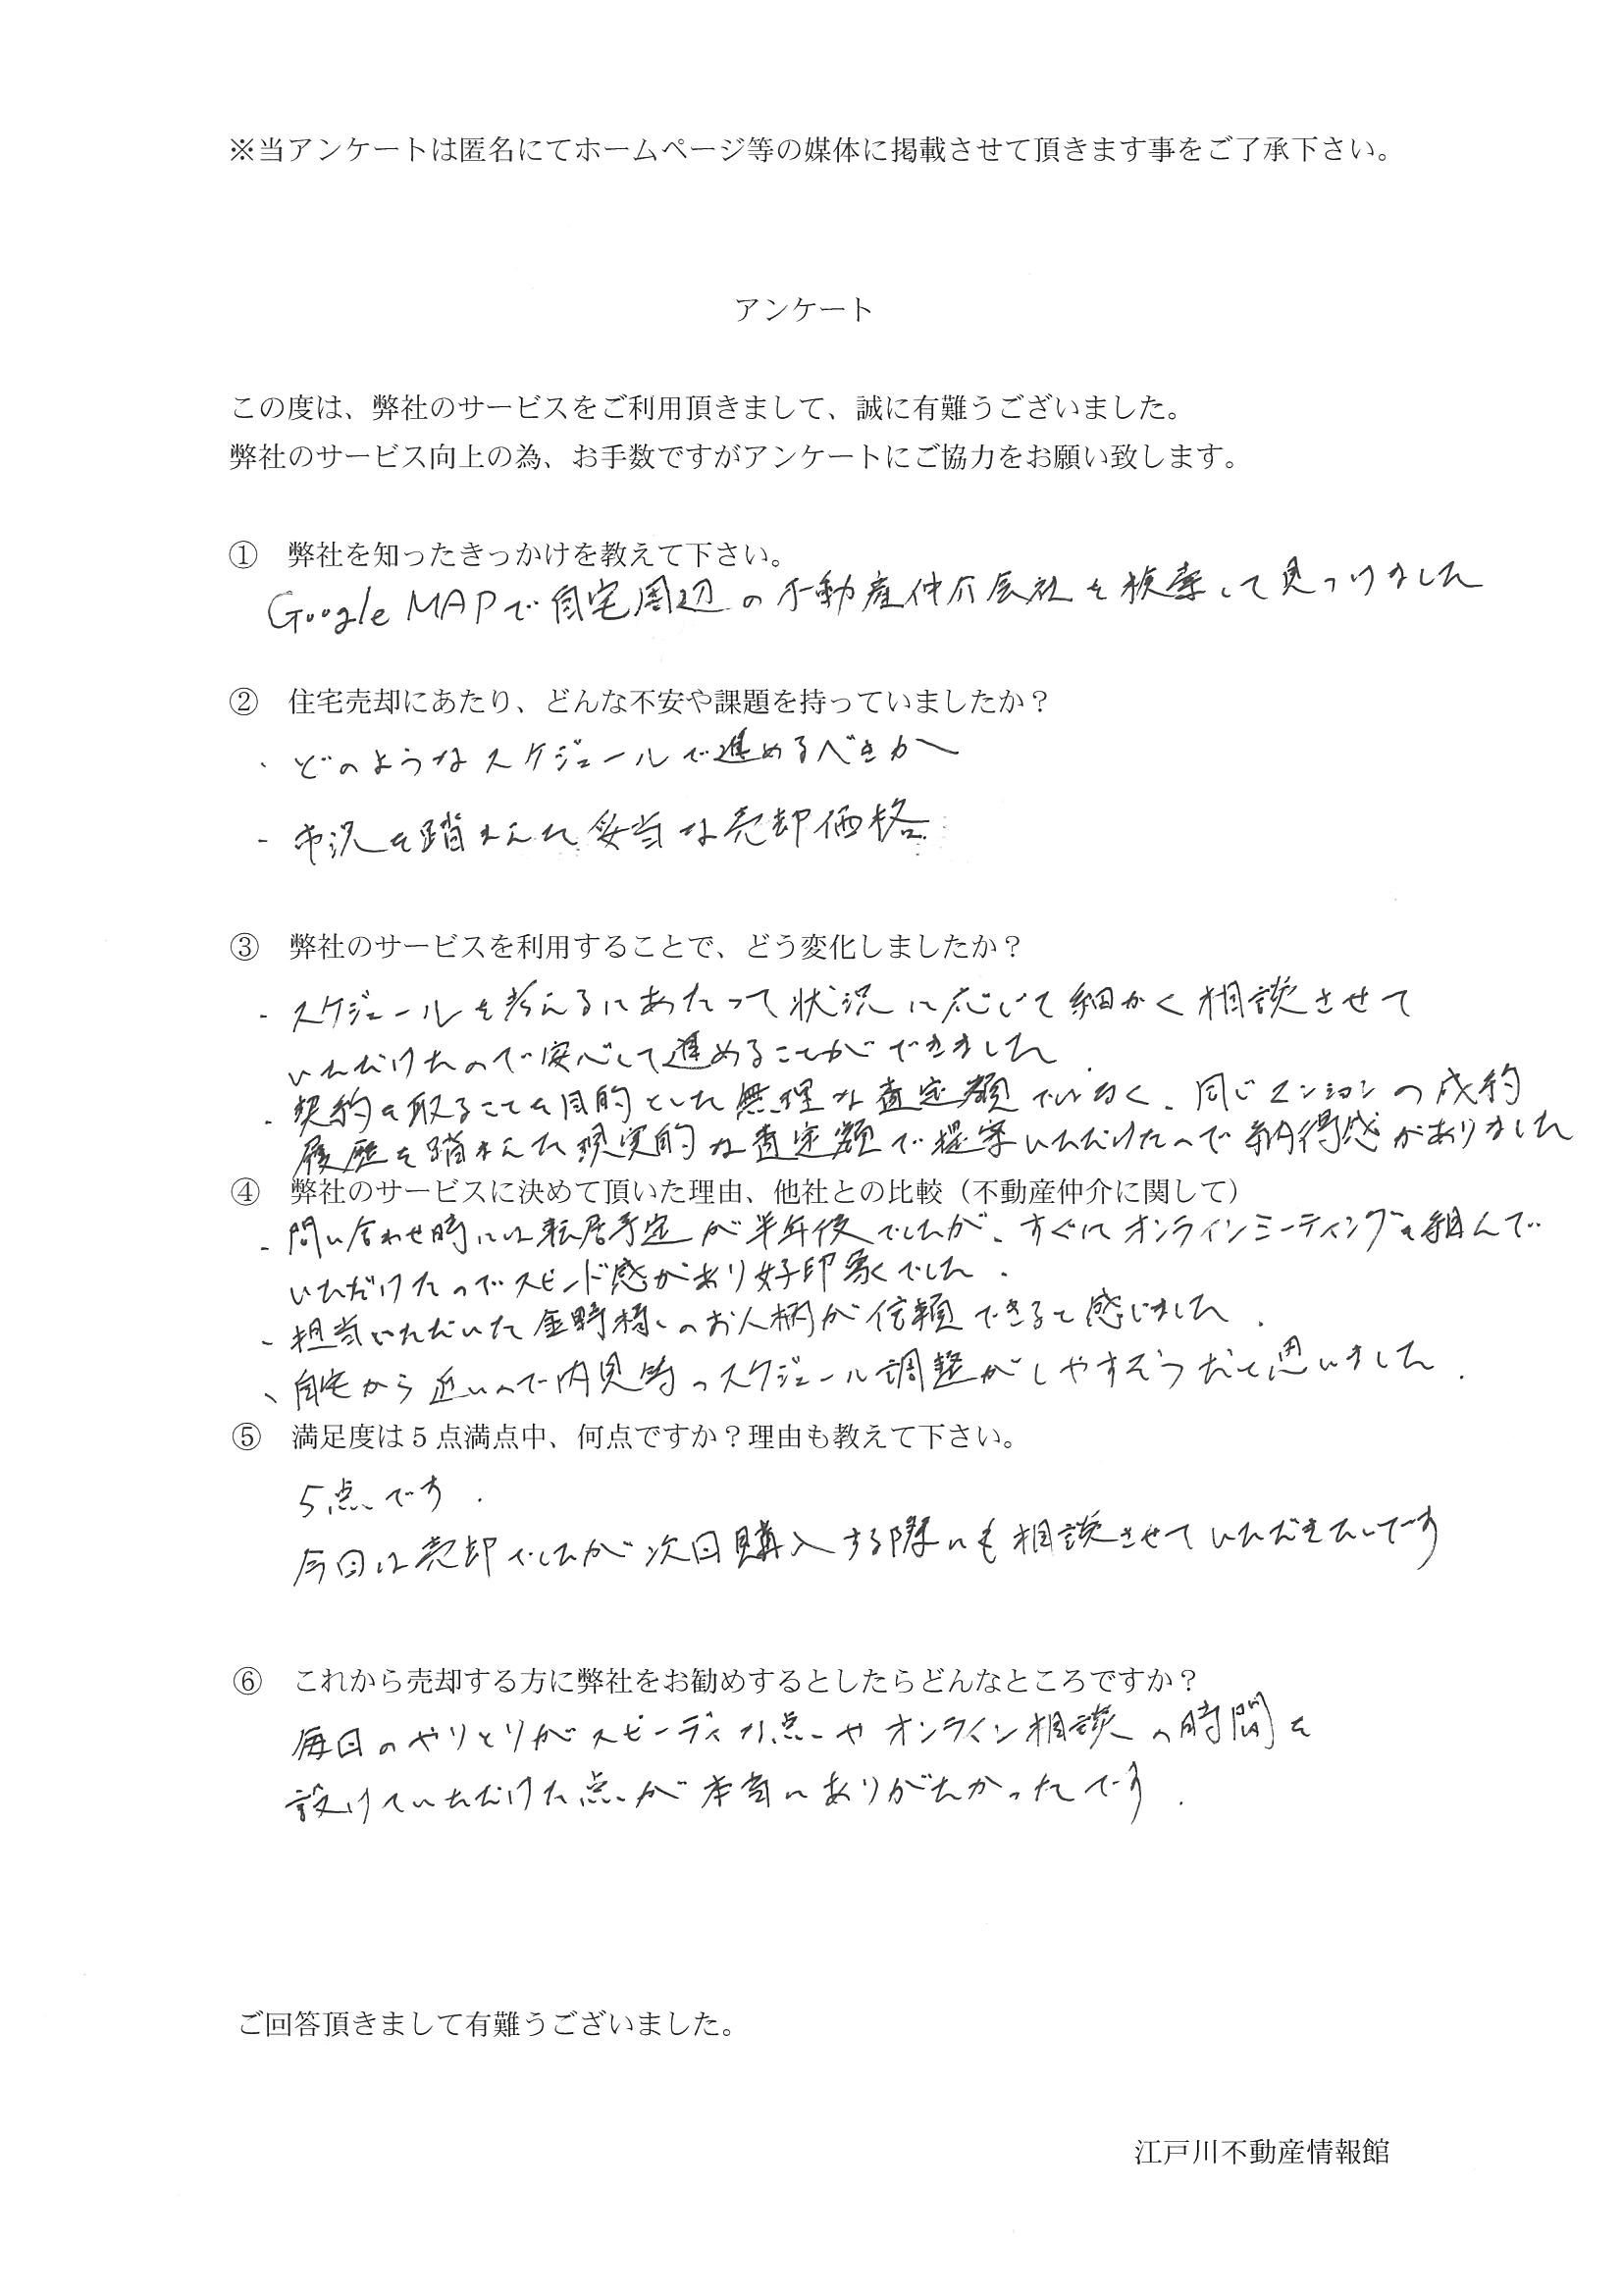 ※当アンケートは匿名にてホームページ等の媒体に掲載させて頂きます事をご了承下さい。
アンケート
この度は、弊社のサービスをご利用頂きまして、誠に有難うございました。
弊社のサービス向上の為、お手数ですがアンケートにご協力をお願い致します。
① 弊社を知ったきっかけを教えて下さい。
Google MAPで自宅周辺の不動産仲介会社を検索して見つけました
② 住宅売却にあたり、どんな不安や課題を持っていましたか？
・どのようなスケジュールで進めるべきか
- 市況を踏まえた妥当な売却価格
③ 弊社のサービスを利用することで、どう変化しましたか？
- スケジュールを考えるにあたって状況に応じて細かく相談させて
いただけたので安心して進めることができました
・契約を取ることを目的とした無理な査定額ではなく、同じマンションの成約
履歴を踏まえた現実的な査定額で提案いただけたので納得感がありました
④ 弊社のサービスに決めて頂いた理由、他社との比較（不動産仲介に関して）
- 問い合わせ時には転居予定が半年後でしたが、すぐにオンラインミーティングを組んで
いただけたのでスピード感があり好印象でした.
- 担当いただいた金野様のお人柄が信頼できると感じました.
、自宅から近いので内見時のスケジュール調整がしやすそうだと思いました.
⑤ 満足度は５点満点中、何点ですか？理由も教えて下さい。
5点です.
今回は売却でしたが次回購入する際にも相談させていただきたいです
⑥ これから売却する方に弊社をお勧めするとしたらどんなところですか？
毎日のやりとりがスピーディな点やオンライン相談の時間を
設けていただけた点が本当にありがたかったです.
ご回答頂きまして有難うございました。
江戸川不動産情報館